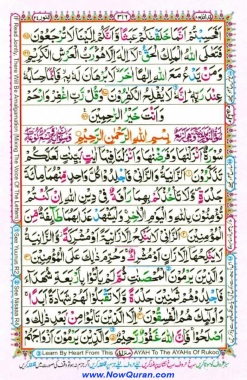 اَفَحَسِبْتُمْ اَنَّمَا خَلَقْنٰكُمْ عَبَثًا وَّاَنَّكُمْ اِلَيْنَا لَا تُرْجَعُوْنَ
فَتَعٰلَى اللّٰهُ الْمَلِكُ الْحَقُّ لَآ اِلٰهَ اِلَّا هُوَ رَبُّ الْعَرْشِ الْكَرِيْمِ
وَمَنْ يَّدْعُ مَعَ اللّٰهِ اِلٰهًا اٰخَرَ لَا بُرْهَانَ لَهٗ بِهٖ فَاِنَّمَا حِسَابُهٗ
عِنْدَ رَبِّهٖ اِنَّهٗ لَا يُفْلِحُ الْكٰفِرُوْنَ وَقُلْ رَّبِّ اغْفِرْ وَارْحَمْ
وَاَنْتَ خَيْرُ الرّٰحِمِيْنَ
بِسْمِ اللّٰهِ الرَّحْمٰنِ الرَّحِيْمِ
سُوْرَةٌ اَنْزَلْنٰهَا وَفَرَضْنٰهَا وَاَنْزَلْنَا فِيْهَآ اٰيٰتٍۭ بَيِّنٰتٍ لَّعَلَّكُمْ
تَذَكَّرُوْنَ اَلزَّانِيَةُ وَالزَّانِيْ فَاجْلِدُوْا كُلَّ وَاحِدٍ مِّنْهُمَا مِائَةَ
جَلْدَةٍ وَّلَا تَاْخُذْكُمْ بِهِمَا رَاْفَةٌ فِيْ دِيْنِ اللّٰهِ اِنْ كُنْتُمْ
تُؤْمِنُوْنَ بِاللّٰهِ وَالْيَوْمِ الْاٰخِرِ وَلْيَشْهَدْ عَذَابَهُمَا طَآئِفَةٌ مِّنَ
الْمُؤْمِنِيْنَ اَلزَّانِيْ لَا يَنْكِحُ اِلَّا زَانِيَةً اَوْ مُشْرِكَةً وَّالزَّانِيَةُ
لَا يَنْكِحُهَآ اِلَّا زَانٍ اَوْ مُشْرِكٌ وَحُرِّمَ ذٰلِكَ عَلَى الْمُؤْمِنِيْنَ
وَالَّذِيْنَ يَرْمُوْنَ الْمُحْصَنٰتِ ثُمَّ لَمْ يَاْتُوْا بِاَرْبَعَةِ شُهَدَآءَ
فَاجْلِدُوْهُمْ ثَمٰنِيْنَ جَلْدَةً وَّلَا تَقْبَلُوْا لَهُمْ شَهَادَةً اَبَدًا
وَاُولٰٓئِكَ هُمُ الْفٰسِقُوْنَ اِلَّا الَّذِيْنَ تَابُوْا مِنْۢ بَعْدِ ذٰلِكَ وَ
اَصْلَحُوْا فَاِنَّ اللّٰهَ غَفُوْرٌ رَّحِيْمٌ وَالَّذِيْنَ يَرْمُوْنَ
Learn By Heart From This AYAH To The AYAHs Of Rukoo
www.NowQuran.com